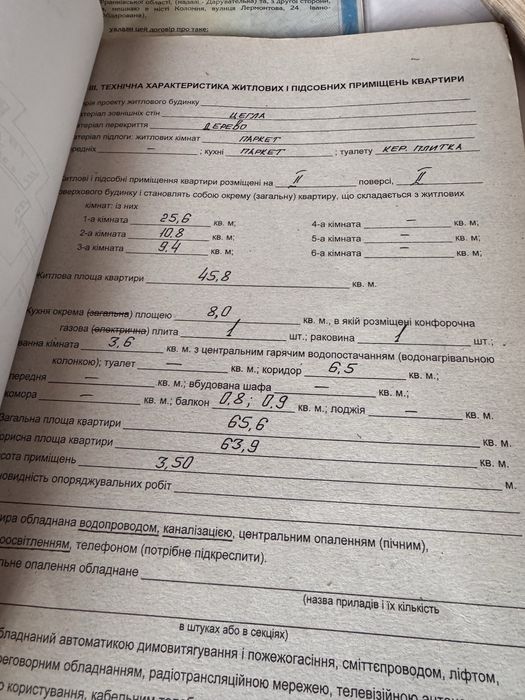 Франківської області, (надалі - Дарувательна) та, з другої сторони,
мешкаю в місті Коломия, вулиця Лермонтова, 24 Івано-
даровано),
уклали цей договір про таке:
III. ТЕХНІЧНА ХАРАКТЕРИСТИКА ЖИТЛОВИХ І ПІДСОБНИХ ПРИМІЩЕНЬ КВАРТИРИ
ерія проекту житлового будинку
атеріал зовнішніх стін ЦЕГЛА
атеріал перекриття ДЕРЕВО
атеріал підлоги: житлових кімнат ПАРКЕТ
редніх — ; кухні ПАРКЕТ ; туалету КЕР. ПЛИТКА
итлові і підсобні приміщення квартири розміщені на II поверсі, II
оверхового будинку і становлять собою окрему (загальну) квартиру, що складається з житлових
кімнат: із них
1-а кімната 25,6 кв. м; 4-а кімната — кв. м;
2-а кімната 10.8 кв. м; 5-а кімната — кв. м;
3-а кімната 9.4 кв. м; 6-а кімната — кв. м;
Житлова площа квартири 45,8 кв. м.
Кухня окрема (загальна) площею 8,0 кв. м., в якій розміщені конфорочна
газова (електрична) плита 1 шт.; раковина 1 шт.;
ванна кімната 3,6 кв. м. з центральним гарячим водопостачанням (водонагрівальною
колонкою); туалет — кв. м.; коридор 6,5 кв. м.;
передня — кв. м.; вбудована шафа — кв. м.;
комора — кв. м.; балкон 0,8; 0,9 кв. м.; лоджія — кв. м.
Загальна площа квартири 65,6 кв. м.
орисна площа квартири 63,9 кв. м.
сота приміщень 3,50 м.
новидність опоряджувальних робіт
ира обладнана водопроводом, каналізацією, центральним опаленням (пічним),
роосвітленням, телефоном (потрібне підкреслити).
льне опалення обладнане
(назва приладів і їх кількість
в штуках або в секціях)
бладнаний автоматикою димовитягування і пожежогасіння, сміттєпроводом, ліфтом,
реговорним обладнанням, радіотрансляційною мережею, телевізійною
о користування, кабельним